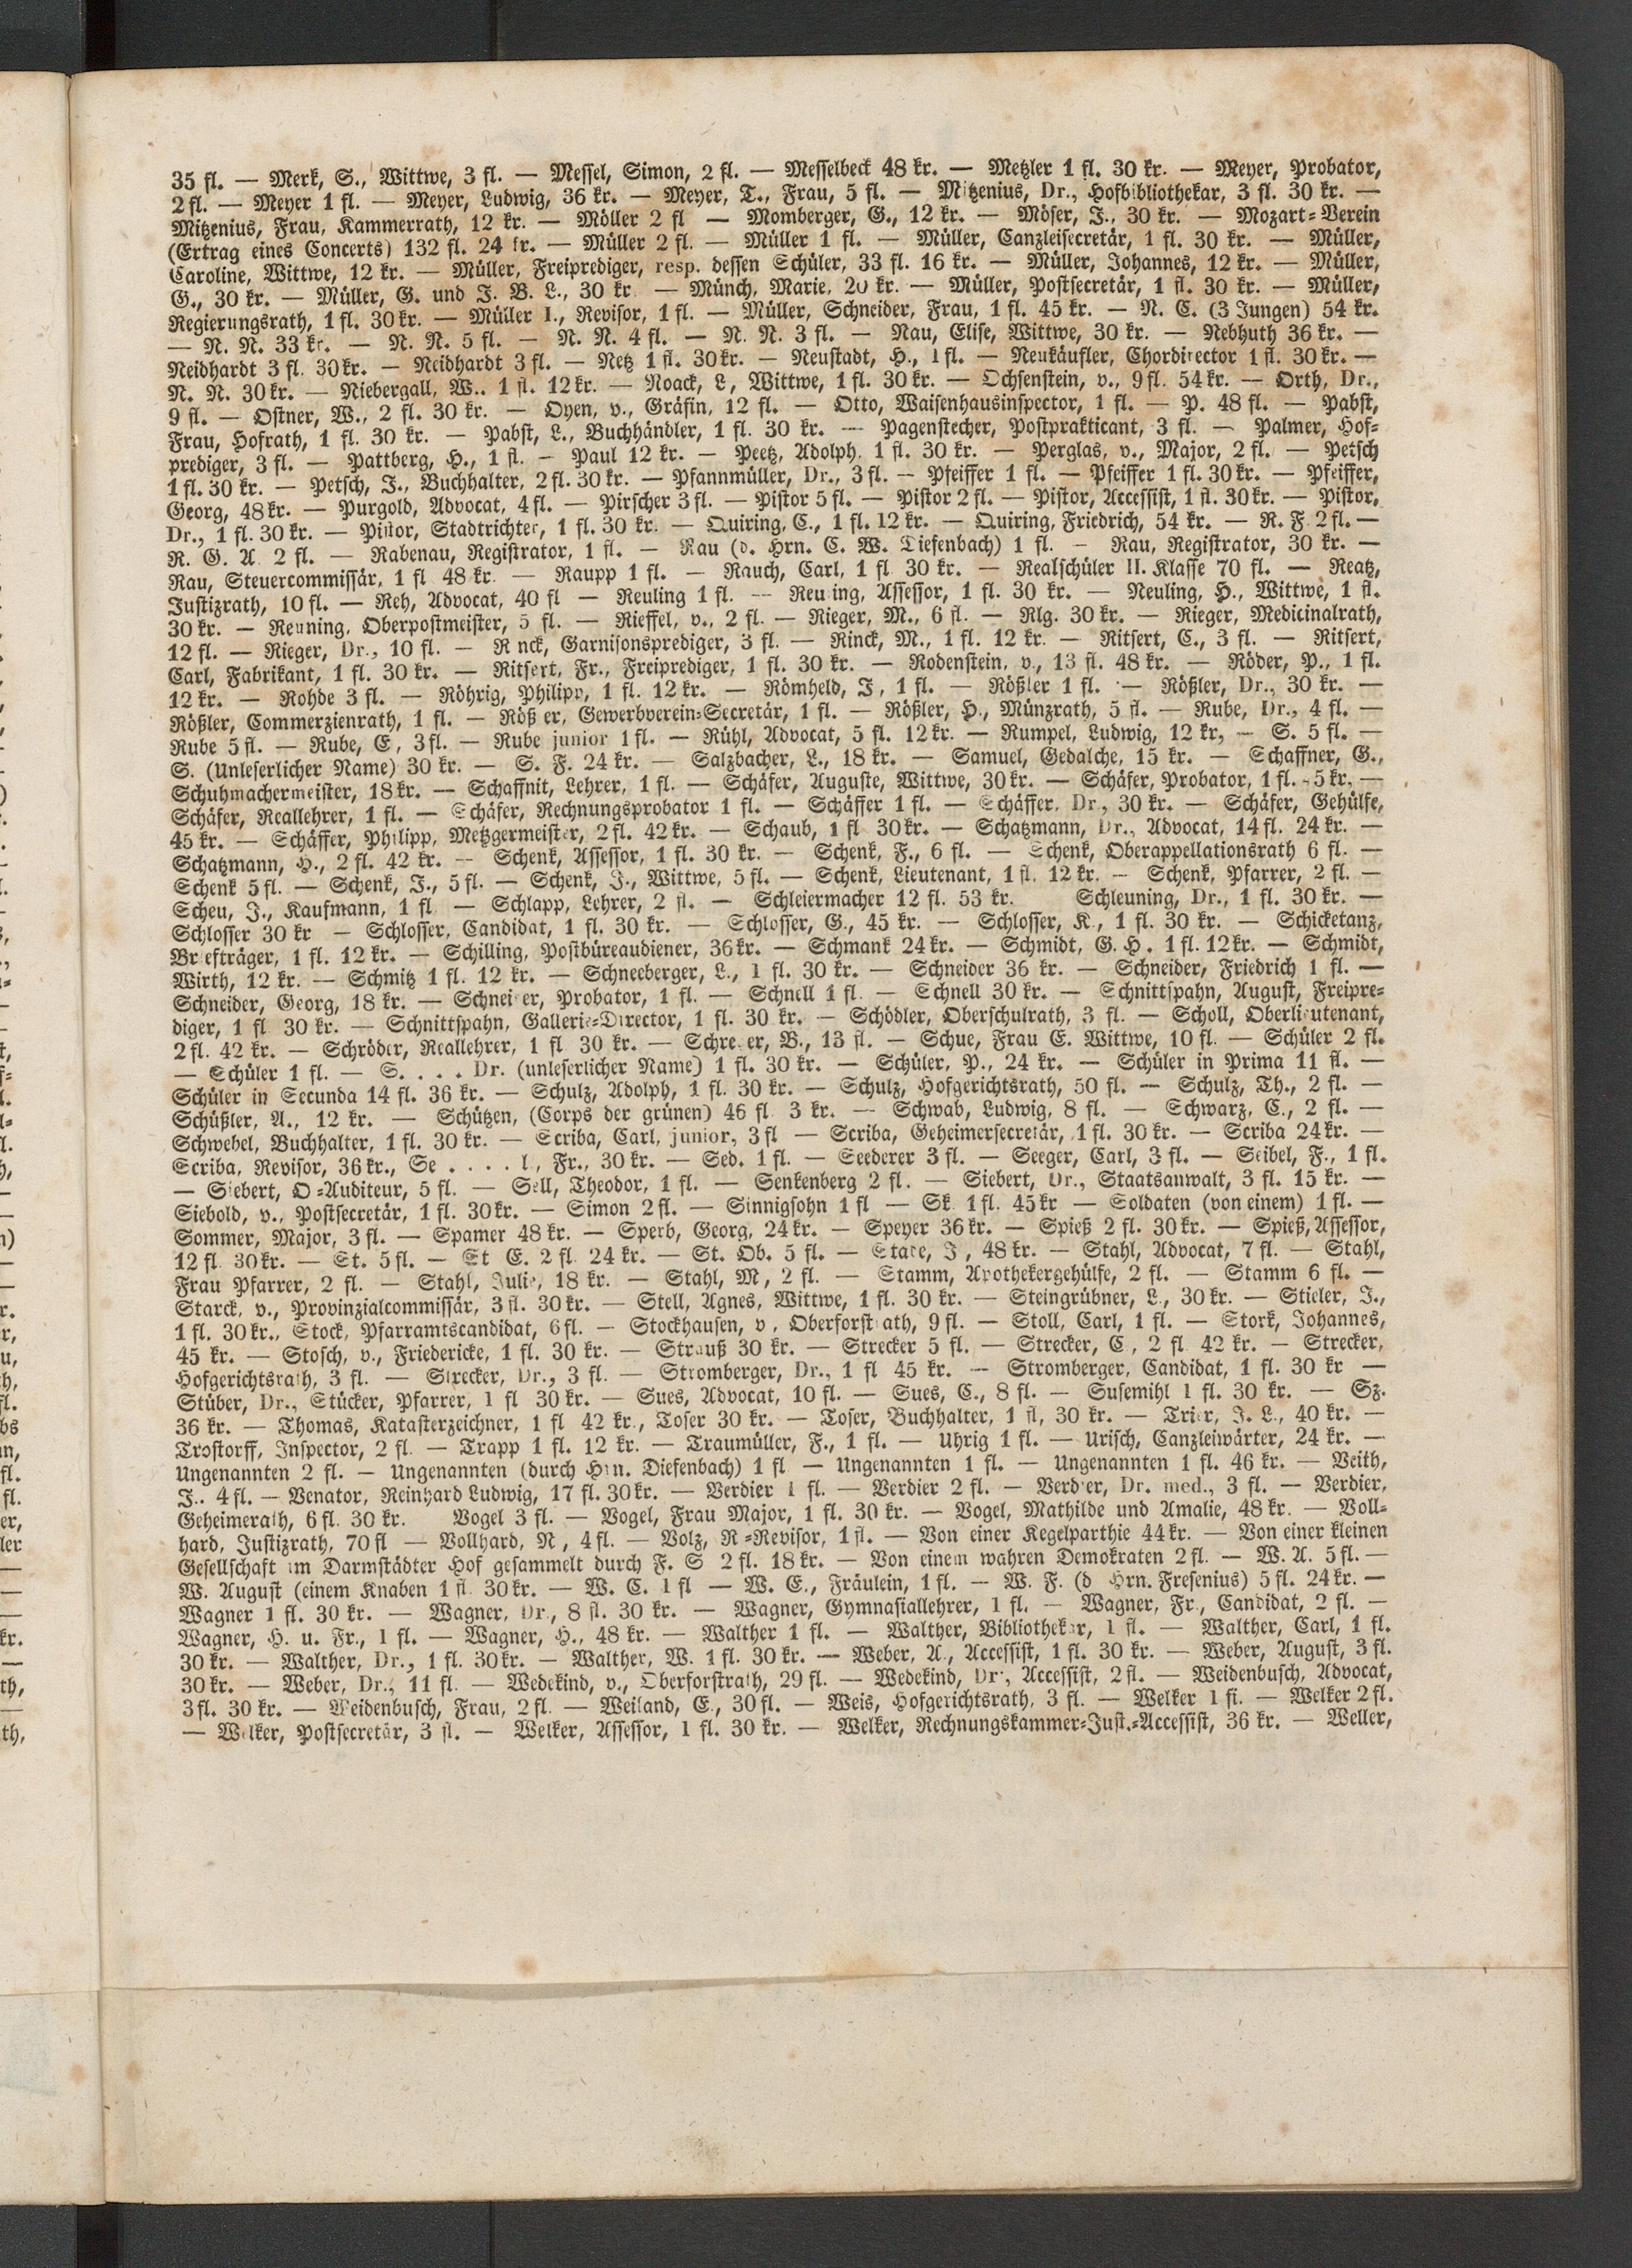 35 fl. — Merk, S., Wittwe, 3 fl. — Messel, Simon, 2 fl. — Messelbeck 48 kr. — Metzler 1 fl. 30 kr. — Meyer, Probator,
2 fl. — Meyer 1 fl. — Meyer, Ludwig, 36 kr. — Meyer, T., Frau, 5 fl. — Mitzenius, Dr., Hofbibliothekar, 3 fl. 30 kr. —
Mitzenius, Frau, Kammerrath, 12 kr. — Möller 2 fl — Momberger, G., 12 kr. — Möser, J., 30 kr. — Mozart-Verein
(Ertrag eines Concerts) 132 fl. 24 kr. — Müller 2 fl. — Müller 1 fl. — Müller, Canzleisecretär, 1 fl. 30 kr. — Müller,
Caroline, Wittwe, 12 kr. — Müller, Freiprediger, resp. dessen Schüler, 33 fl. 16 kr. — Müller, Johannes, 12 kr. — Müller,
G., 30 kr. — Müller, G. und J. B. L., 30 kr. — Münch, Marie, 20 kr. — Müller, Postsecretär, 1 fl. 30 kr. — Müller,
Regierungsrath, 1 fl. 30 kr. — Müller I., Revisor, 1 fl. — Müller, Schneider, Frau, 1 fl. 45 kr. — N. C. (3 Jungen) 54 kr.
— N. N. 33 kr. — N. N. 5 fl. — N. N. 4 fl. — N. N. 3 fl. — Nau, Elise, Wittwe, 30 kr. — Nebhuth 36 kr. —
Neidhardt 3 fl. 30 kr. — Neidhardt 3 fl. — Netz 1 fl. 30 kr. — Neustadt, H., 1 fl. — Neukäufler, Chordirector 1 fl. 30 kr. —
N. N. 30 kr. — Niebergall, W.. 1 fl. 12 kr. — Noack, L, Wittwe, 1 fl. 30 kr. — Ochsenstein, v., 9 fl. 54 kr. — Orth, Dr.,
9 fl. — Ostner, W., 2 fl. 30 kr. — Oyen, v., Gräfin, 12 fl. — Otto, Waisenhausinspector, 1 fl. — P. 48 fl. — Pabst,
Frau, Hofrath, 1 fl. 30 kr. — Pabst, L., Buchhändler, 1 fl. 30 kr. — Pagenstecher, Postprakticant, 3 fl. — Palmer, Hof-
prediger, 3 fl. — Pattberg, H., 1 fl. — Paul 12 kr. — Peetz, Adolph, 1 fl. 30 kr. — Perglas, v., Major, 2 fl. — Petsch
1 fl. 30 kr. — Petsch, J., Buchhalter, 2 fl. 30 kr. — Pfannmüller, Dr., 3 fl. — Pfeiffer 1 fl. — Pfeiffer 1 fl. 30 kr. — Pfeiffer,
Georg, 48 kr. — Purgold, Advocat, 4 fl. — Pirscher 3 fl. — Pistor 5 fl. — Pistor 2 fl. — Pistor, Accessist, 1 fl. 30 kr. — Pistor,
Dr., 1 fl. 30 kr. — Pistor, Stadtrichter, 1 fl. 30 kr. — Quiring, C., 1 fl. 12 kr. — Quiring, Friedrich, 54 kr. — R. F. 2 fl. —
R. G. A. 2 fl. — Rabenau, Registrator, 1 fl. — Rau (d. Hrn. C. W. Tiefenbach) 1 fl. — Rau, Registrator, 30 kr. —
Rau, Steuercommissär, 1 fl 48 kr. — Raupp 1 fl. — Rauch, Carl, 1 fl 30 kr. — Realschüler II. Klasse 70 fl. — Reatz,
Justizrath, 10 fl. — Reh, Advocat, 40 fl — Reuling 1 fl. — Reuling, Assessor, 1 fl. 30 kr. — Neuling, H., Wittwe, 1 fl.
30 kr. — Reuning, Oberpostmeister, 5 fl. — Rieffel, v., 2 fl. — Rieger, M., 6 fl. — Rlg. 30 kr. — Rieger, Medicinalrath,
12 fl. — Rieger, Dr., 10 fl. — R nck, Garnisonsprediger, 3 fl. — Rinck, M., 1 fl. 12 kr. — Ritsert, C., 3 fl. — Ritsert,
Carl, Fabrikant, 1 fl. 30 kr. — Ritsert, Fr., Freiprediger, 1 fl. 30 kr. — Rodenstein, v., 13 fl. 48 kr. — Röder, P., 1 fl.
12 kr. — Rohde 3 fl. — Röhrig, Philipp, 1 fl. 12 kr. — Römheld, J, 1 fl. — Rößler 1 fl. — Rößler, Dr., 30 kr. —
Rößler, Commerzienrath, 1 fl. — Röß er, Gewerbverein-Secretär, 1 fl. — Rößler, H., Münzrath, 5 fl. — Rube, Dr., 4 fl. —
Rube 5 fl. — Rube, E, 3 fl. — Rube junior 1 fl. — Rühl, Advocat, 5 fl. 12 kr. — Rumpel, Ludwig, 12 kr, — S. 5 fl. —
S. (Unleserlicher Name) 30 kr. — S. F. 24 kr. — Salzbacher, L., 18 kr. — Samuel, Gedalche, 15 kr. — Schaffner, G.,
Schuhmachermeister, 18 kr. — Schaffnit, Lehrer, 1 fl. — Schäfer, Auguste, Wittwe, 30 kr. — Schäfer, Probator, 1 fl. 5 kr. —
Schäfer, Reallehrer, 1 fl. — Schäfer, Rechnungsprobator 1 fl. — Schäffer 1 fl. — Schäffer, Dr., 30 kr. — Schäfer, Gehülfe,
45 kr. — Schäffer, Philipp, Metzgermeister, 2 fl. 42 kr. — Schaub, 1 fl 30 kr. — Schatzmann, Dr., Advocat, 14 fl. 24 kr. —
Schatzmann, H., 2 fl. 42 kr. — Schenk, Assessor, 1 fl. 30 kr. — Schenk, F., 6 fl. — Schenk, Oberappellationsrath 6 fl. —
Schenk 5 fl. — Schenk, J., 5 fl. — Schenk, J., Wittwe, 5 fl. — Schenk, Lieutenant, 1 fl. 12 kr. — Schenk, Pfarrer, 2 fl. —
Scheu, J., Kaufmann, 1 fl. — Schlapp, Lehrer, 2 fl. — Schleiermacher 12 fl. 53 kr. Schleuning, Dr., 1 fl. 30 kr. —
Schlosser 30 kr — Schlosser, Candidat, 1 fl. 30 kr. — Schlosser, G., 45 kr. — Schlosser, K., 1 fl. 30 kr. — Schicketanz,
Br efträger, 1 fl. 12 kr. — Schilling, Postbüreaudiener, 36 kr. — Schmank 24 kr. — Schmidt, G. H. 1 fl. 12 kr. — Schmidt,
Wirth, 12 kr. — Schmitz 1 fl. 12 kr. — Schneeberger, L., 1 fl. 30 kr. — Schneider 36 kr. — Schneider, Friedrich 1 fl. —
Schneider, Georg, 18 kr. — Schneider, Probator, 1 fl. — Schnell 1 fl. — Schnell 30 kr. — Schnittspahn, August, Freipre-
diger, 1 fl 30 kr. — Schnittspahn, Gallerie-Director, 1 fl. 30 kr. — Schödler, Oberschulrath, 3 fl. — Scholl, Oberlieutenant,
2 fl. 42 kr. — Schröder, Reallehrer, 1 fl 30 kr. — Schre er, B., 13 fl. — Schue, Frau E. Wittwe, 10 fl. — Schüler 2 fl.
— Schüler 1 fl. — S. . . . Dr. (unleserlicher Name) 1 fl. 30 kr. — Schüler, P., 24 kr. — Schüler in Prima 11 fl. —
Schüler in Secunda 14 fl. 36 kr. — Schulz, Adolph, 1 fl. 30 kr. — Schulz, Hofgerichtsrath, 50 fl. — Schulz, Th., 2 fl. —
Schüßler, A., 12 kr. — Schützen, (Corps der grünen) 46 fl. 3 kr. — Schwab, Ludwig, 8 fl. — Schwarz, C., 2 fl. —
Schwebel, Buchhalter, 1 fl. 30 kr. — Scriba, Carl, junior, 3 fl — Scriba, Geheimersecretär, 1 fl. 30 kr. — Scriba 24 kr. —
Scriba, Revisor, 36 kr., Se . . . . l, Fr., 30 kr. — Sed. 1 fl. — Seederer 3 fl. — Seeger, Carl, 3 fl. — Seibel, F., 1 fl.
— Siebert, O-Auditeur, 5 fl. — Sell, Theodor, 1 fl. — Senkenberg 2 fl. — Siebert, Dr., Staatsanwalt, 3 fl. 15 kr. —
Siebold, v., Postsecretär, 1 fl. 30 kr. — Simon 2 fl. — Sinnigsohn 1 fl — Sk. 1 fl. 45 kr — Soldaten (von einem) 1 fl. —
Sommer, Major, 3 fl. — Spamer 48 kr. — Sperb, Georg, 24 kr. — Speyer 36 kr. — Spieß 2 fl. 30 kr. — Spieß, Assessor,
12 fl. 30 kr. — St. 5 fl. — St E. 2 fl. 24 kr. — St. Ob. 5 fl. — J, 48 kr. — Stahl, Advocat, 7 fl. — Stahl,
Frau Pfarrer, 2 fl. — Stahl, Julie, 18 kr. — Stahl, M, 2 fl. — Stamm, Apothekergehülfe, 2 fl. — Stamm 6 fl. —
Starck, v., Provinzialcommissär, 3 fl. 30 kr. — Stell, Agnes, Wittwe, 1 fl. 30 kr. — Steingrübner, L., 30 kr. — Stieler, J.,
1 fl. 30 kr., Stock, Pfarramtscandidat, 6 fl. — Stockhausen, v, Oberforst ath, 9 fl. — Stoll, Carl, 1 fl. — Stork, Johannes,
45 kr. — Stosch, v., Friedericke, 1 fl. 30 kr. — Strauß 30 kr. — Strecker 5 fl. — Strecker, C, 2 fl 42 kr. — Strecker,
Hofgerichtsrath, 3 fl. — Strecker, Dr., 3 fl. — Stromberger, Dr., 1 fl 45 kr. — Stromberger, Candidat, 1 fl. 30 kr —
Stüber, Dr., Stücker, Pfarrer, 1 fl 30 kr. — Sues, Advocat, 10 fl. — Sues, C., 8 fl. — Susemihl 1 fl. 30 kr. — Sz.
36 kr. — Thomas, Katasterzeichner, 1 fl 42 kr., Toser 30 kr. — Toser, Buchhalter, 1 fl, 30 kr. — Trier, J. L., 40 kr. —
Trostorff, Inspector, 2 fl. — Trapp 1 fl. 12 kr. — Traumüller, F., 1 fl. — Uhrig 1 fl. — Urisch, Canzleiwärter, 24 kr. —
Ungenannten 2 fl. — Ungenannten (durch Hrn. Diefenbach) 1 fl — Ungenannten 1 fl. — Ungenannten 1 fl. 46 kr. — Veith,
J.. 4 fl. — Venator, Reinhard Ludwig, 17 fl. 30 kr. — Verdier 1 fl. — Verdier 2 fl. — Verdier, Dr. med., 3 fl. — Verdier,
Geheimerath, 6 fl. 30 kr. Vogel 3 fl. — Vogel, Frau Major, 1 fl. 30 kr. — Vogel, Mathilde und Amalie, 48 kr. — Voll-
hard, Justizrath, 70 fl — Vollhard, N, 4 fl. — Volz, R-Revisor, 1 fl. — Von einer Kegelparthie 44 kr. — Von einer kleinen
Gesellschaft im Darmstädter Hof gesammelt durch F. S 2 fl. 18 kr. — Von einem wahren Demokraten 2 fl. — W. A. 5 fl. —
W. August (einem Knaben 1 fl. 30 kr. — W. C. 1 fl — W. E., Fräulein, 1 fl. — W. F. (d Hrn. Fresenius) 5 fl. 24 kr. —
Wagner 1 fl. 30 kr. — Wagner, Dr, 8 fl. 30 kr. — Wagner, Gymnasiallehrer, 1 fl. — Wagner, Fr., Candidat, 2 fl. —
Wagner, H. u. Fr., 1 fl. — Wagner, H., 48 kr. — Walther 1 fl. — Walther, Bibliothekar, 1 fl. — Walther, Carl, 1 fl.
30 kr. — Walther, Dr., 1 fl. 30 kr. — Walther, W. 1 fl. 30 kr. — Weber, A., Accessist, 1 fl. 30 kr. — Weber, August, 3 fl.
30 kr. — Weber, Dr., 11 fl. — Wedekind, v., Oberforstrath, 29 fl. — Wedekind, Dr., Accessist, 2 fl. — Weidenbusch, Advocat,
3 fl. 30 kr. — Weidenbusch, Frau, 2 fl. — Weiland, E., 30 fl. — Weis, Hofgerichtsrath, 3 fl. — Welker 1 fl. — Welker 2 fl.
— Welker, Postsecretär, 3 fl. — Welker, Assessor, 1 fl. 30 kr. — Welker, Rechnungskammer-Just.-Accessist, 36 kr. — Weller,